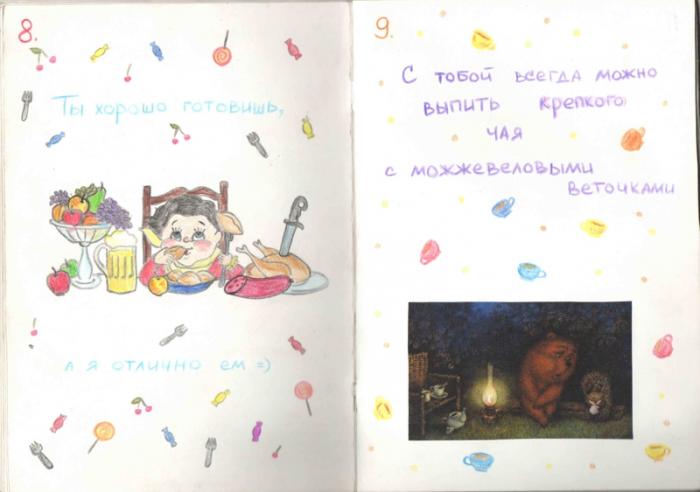 8.
Ты хорошо готовишь,
а я отлично ем =)
9.
С тобой всегда можно
выпить крепкого
чая
с можжевеловыми
веточками